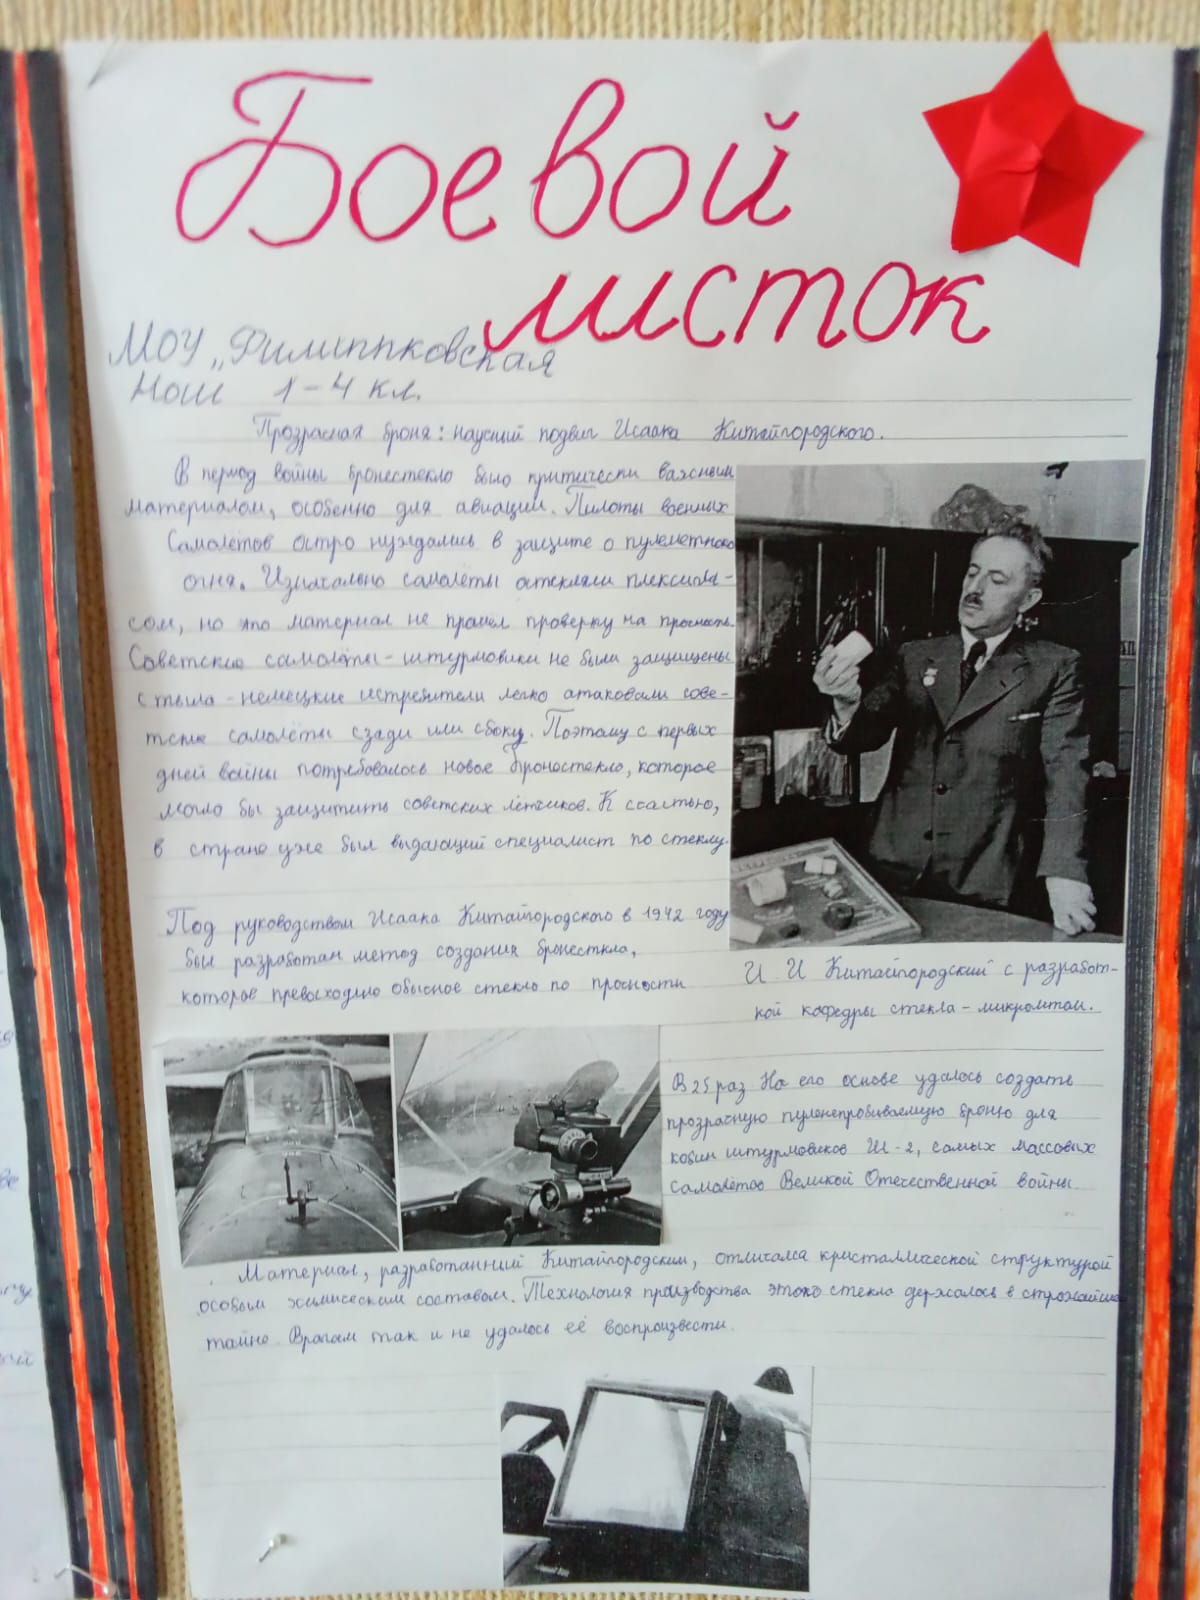 Боевой
листок
МОУ „Филиппковская
НОШ 1-4 кл.
Прозрачная броня: научный подвиг Исаака Китайгородского.
В период войны бронестекло было критически важным
материалом, особенно для авиации. Пилоты военных
самолётов остро нуждались в защите о пулемётного
огня. Изначально самолёты остекляли плексигла-
сом, но это материал не прошел проверку на прочность.
Советские самолёты-штурмовики не были защищены
с тыла - немецкие истребители легко атаковали сове-
тские самолёты сзади или сбоку. Поэтому с первых
дней войны потребовалось новое бронестекло, которое
могло бы защитить советских лётчиков. К счастью,
в стране уже был выдающий специалист по стеклу.
Под руководством Исаака Китайгородского в 1942 году
был разработан метод создания бронестекла,
которое превосходило обычное стекло по прочности
И И Китайгородский с разработ-
кой кафедры стекла - микролитом.
В 25 раз На его основе удалось создать
прозрачную пуленепробиваемую броню для
кабин штурмовиков Ил-2, самых массовых
самолётов Великой Отечественной войны.
Материал, разработанний Китайгородским, отличался кристаллической структурой
особым химическим составом. Технология производства этого стекла держалось в строжайше
тайне. Врагам так и не удалось её воспроизвести.